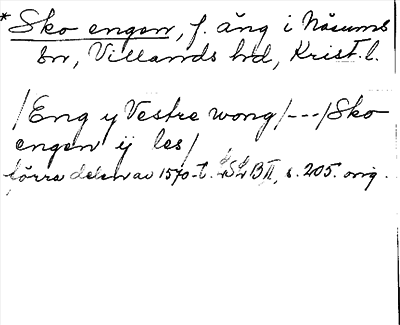 *Sko engen, f. äng i Näsums
sn, Villands hd, Krist. l.
/Eng y Vestre wong/---/Sko
engen ij les/
förra delen av 1570-t. LSLB II, s. 205. orig.